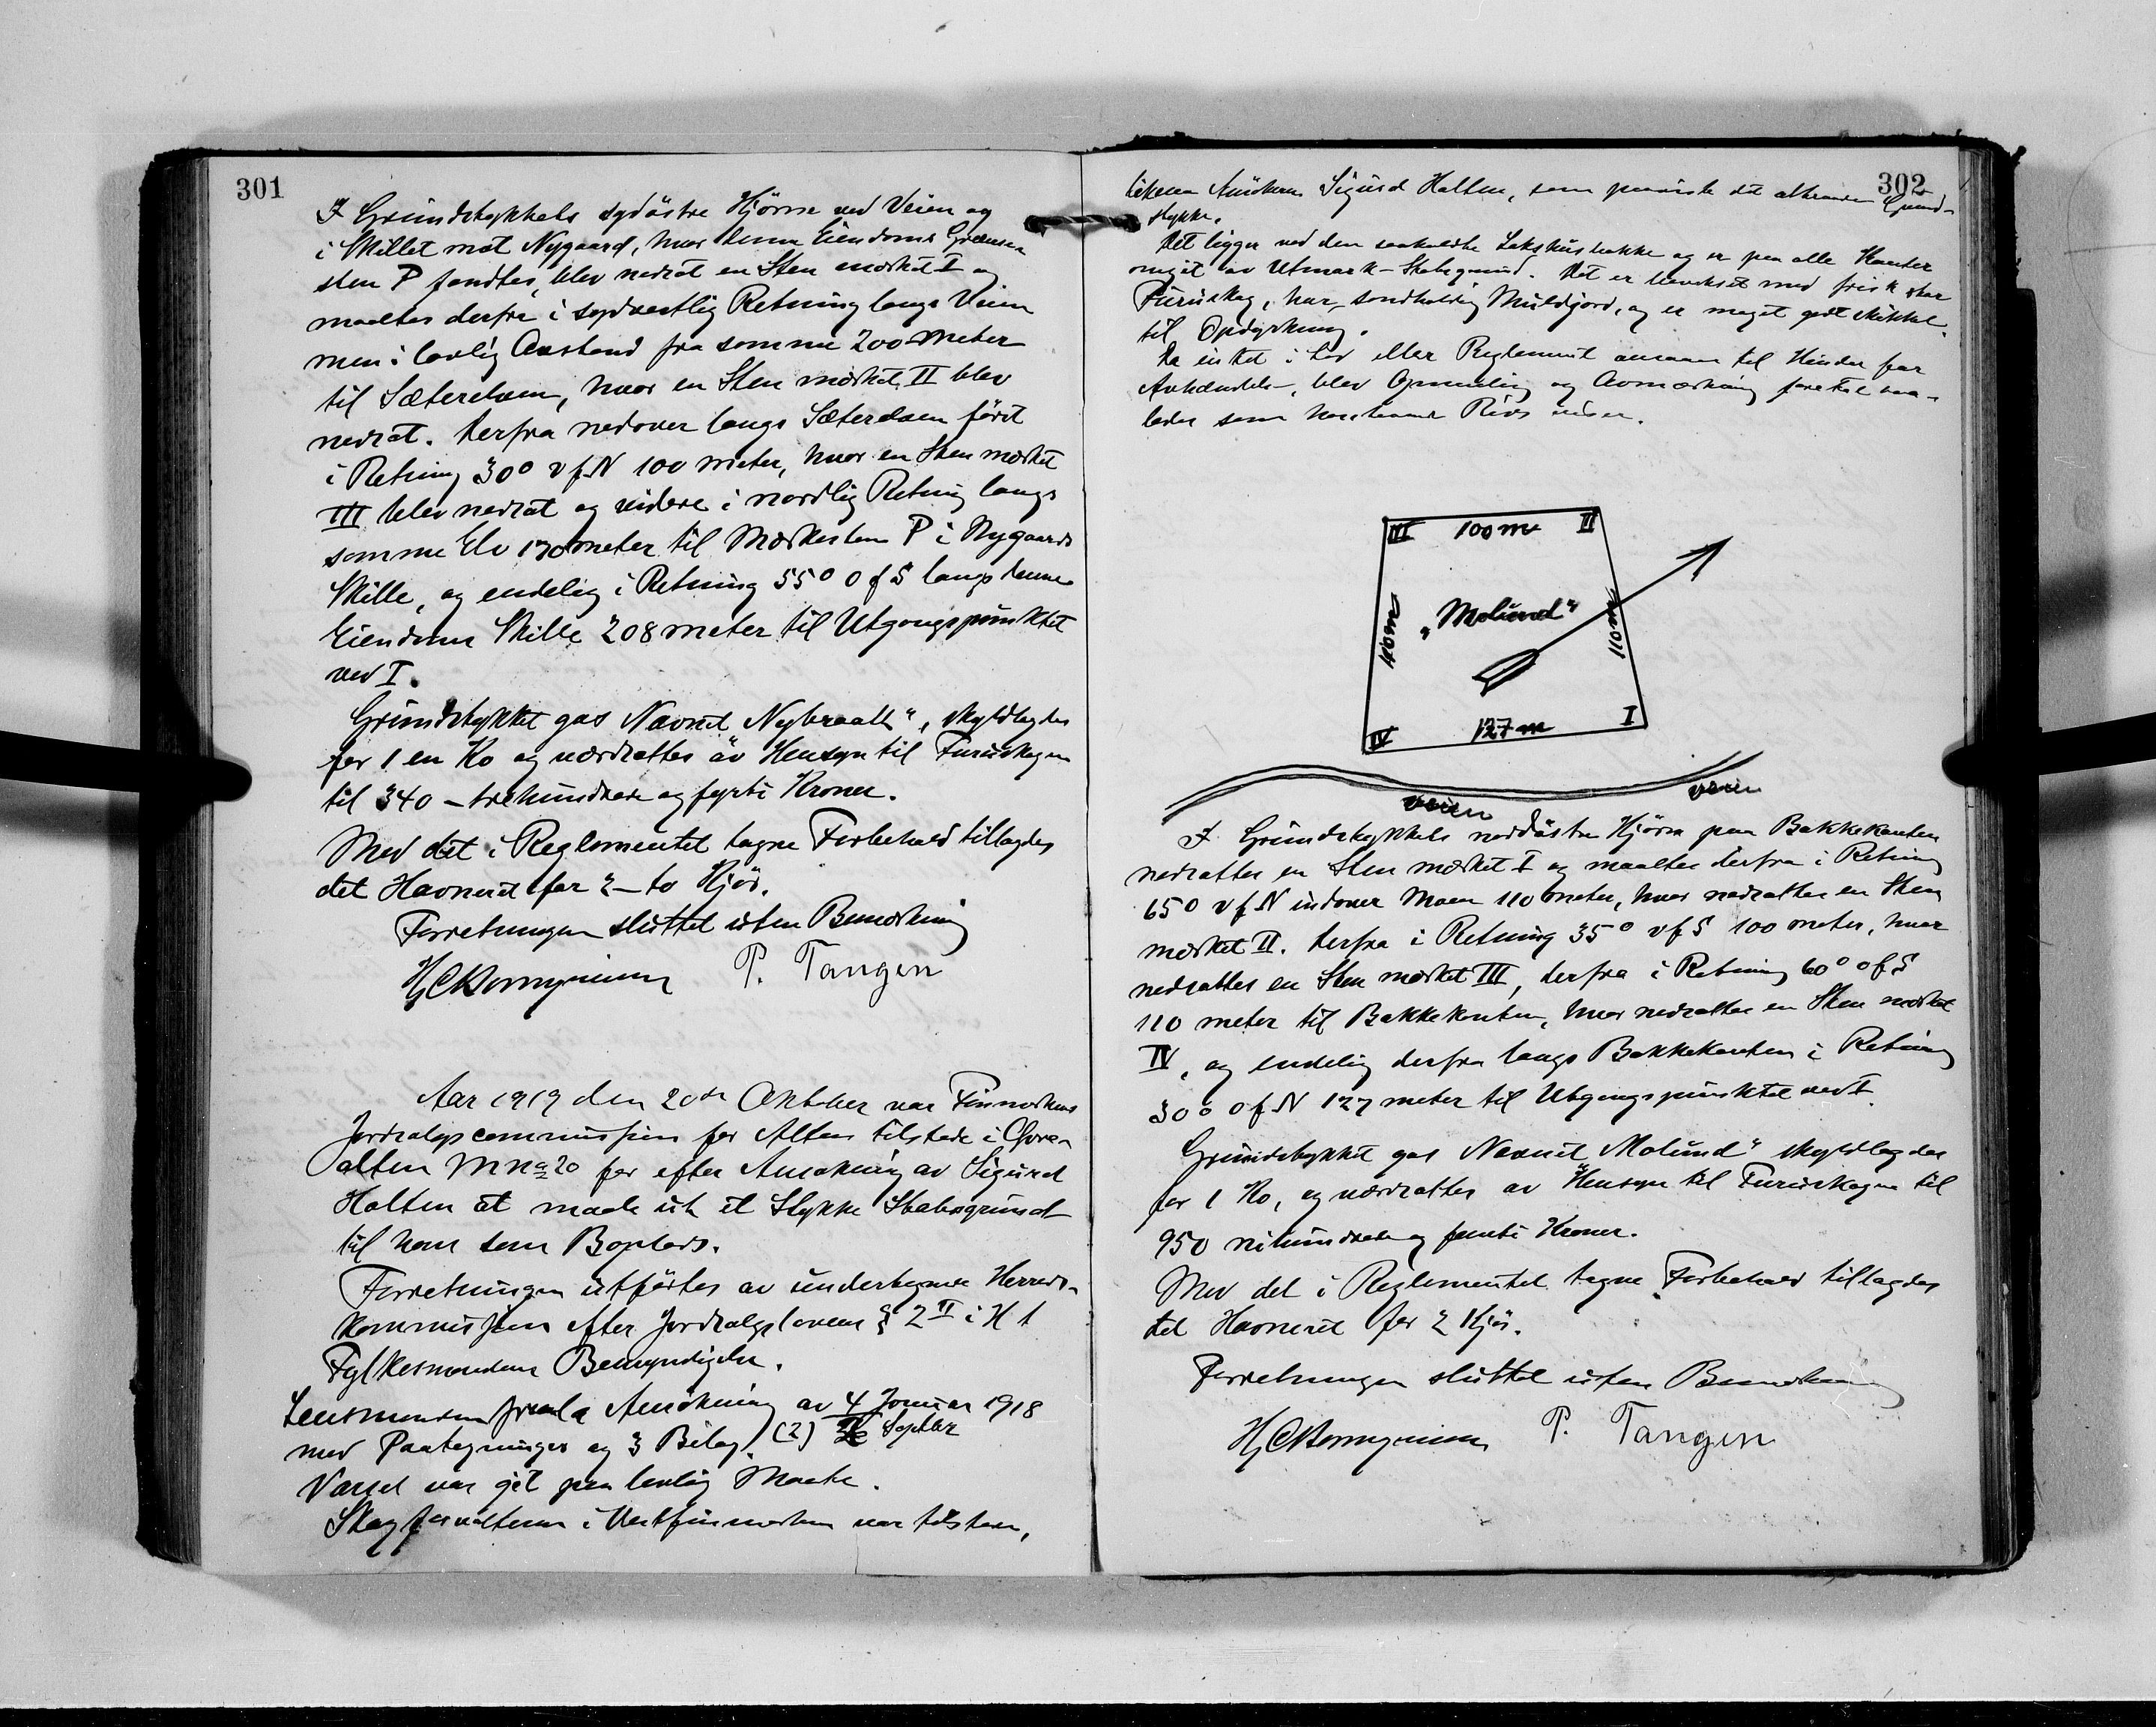 301
I Grundstykkets sydöstre Hjörne ved Veien og
i Skillet mot Nygaard, hvor denne Eiendoms Grænse-
sten P fandtes, blev nedsat en Sten mærket I og
maaltes derfra i sydvestlig Retning langs Veien
men i lovlig Avstand fra samme 200 meter
til Sæterelven, hvor en Sten mærket II blev
nedsat. Derfra nedover langs Sæterelven först
i Retning 30° v f N 100 meter, hvor en Sten mærket
III blev nedsat og videre i nordlig Retning langs
samme Elv 170 meter til Mærkesten P i Nygaards
Skille, og endelig i Retning 55° o f S langs denne
Eiendoms Skille 208 meter til Utgangspunktet
ved I.
Grundstykket gas Navnet Nybraatt", skyldlagdes
for 1 en Ko og værdsattes av Hensyn til Furuskogen
til 340 – trehundrede og fyrti Kroner.
Med det i Reglementet tagne Forbehold tillagdes
det Havneret for 2 – to Kjör.
Forretningen sluttet uten Bemerkning
P. Tangen
Aar 1919 den 20de Oktober var Finmarkens
Jordsalgscommission for Alten tilstede i Övre-
alten M no 20 for efter Ansökning av Sigurd
Holten at maale ut et Stykke Statsgrund
til ham som Boplads.
Forretningen utförtes av undertegnede Herreds-
kommission efter Jordsalgslovens § 2 II i H t
Fylkesmandens Bemyndigelse.
Lensmanden fremla Ansökning av 4 Januar 1918
med Paategninger og 3 Bilag. (2) Septbr
Varsel var git paa lovlig Maate.
Skogforvalteren i Vestfinmarken var tilstede,
302
likesaa Ansökeren Sigurd Holten, som paaviste det attraaede Grund-
stykke.
Det ligger ved den saakaldte bakke og er paa alle Kanter
omgit av Utmark – Statsgrund. Det er bevokset med frisk stor
Furuskog, har sandholdig Muldjord, og er meget godt skikket
til Opdyrkning.
Da intet i Lov eller Reglement ansaaes til Hinder for
Avhændelse, blev Opmaaling og Avmerkning foretat saa-
ledes som hosstaaende Rids viser.
III 100 m II
110 m
„Molund"
110 m
IV 127 m I
veien
veien
I Grundstykkets nordöstre Hjörne paa Bakkekanten
nedsattes en Sten mærket I og maaltes derfra i Retning
65° v f N indover Moen 110 meter, hvor nedsattes en Sten
mærket II. Derfra i Retning 35° v f S 100 meter, hvor
nedsattes en Sten mærket III, derfra i Retning 60° o f S
110 meter til Bakkekanten, hvor nedsattes en Sten mærket
IV, og endelig derfra langs Bakkekanten i Retning
30° o f N 127 meter til Utgangspunktet ved I.
Grundstykket gas Navnet Molund" skyldlagdes
for 1 Ko, og værdsattes av Hensyn til Furuskogen til
950 nihundrede og femti Kroner.
Med det i Reglementet tagne Forbehold tillagdes
det Havneret for 2 Kjör.
Forretningen sluttet uten Bemerkning
P. Tangen